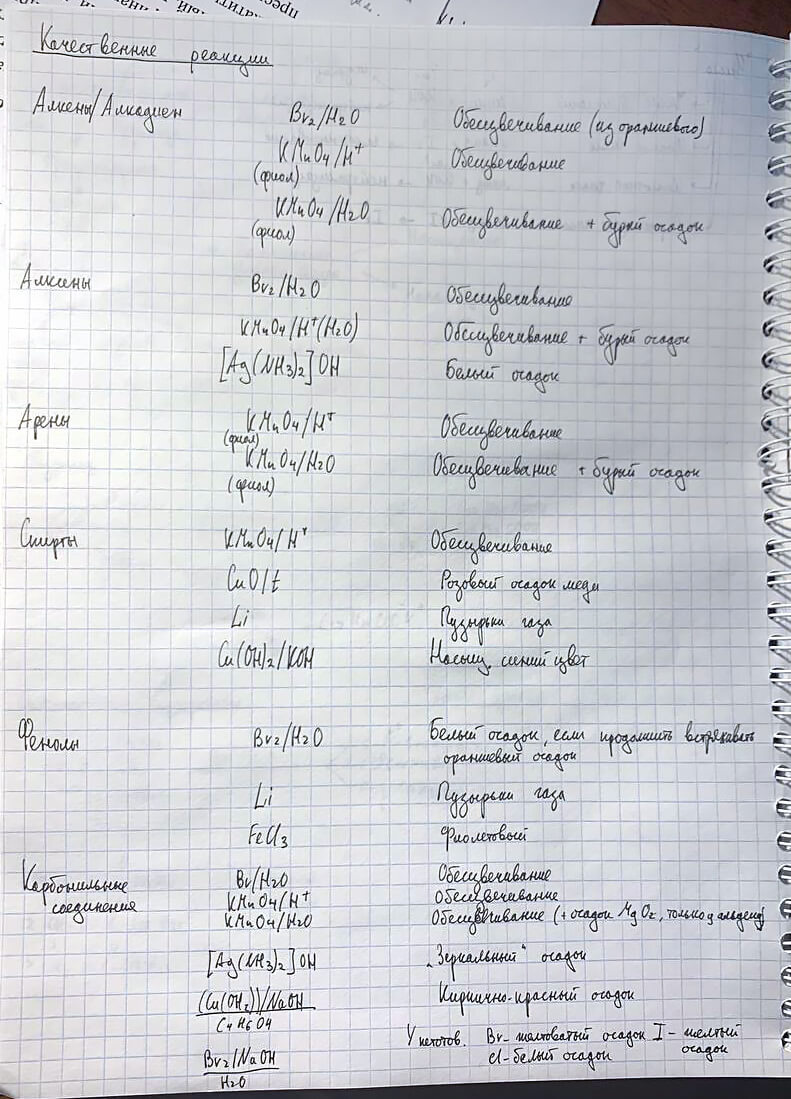 Качественные реакции
Алкены/Алкадиен Br2/H2O Обесцвечивание (из оранжевого)
KMnO4/H+ Обесцвечивание
(фиол)
KMnO4/H2O Обесцвечивание + бурый осадок
(фиол)
Алкины Br2/H2O Обесцвечивание
KMnO4/H+(H2O) Обесцвечивание + бурый осадок
[Ag(NH3)2]OH Белый осадок
Арены KMnO4/H+ Обесцвечивание
(фиол)
KMnO4/H2O Обесцвечивание + бурый осадок
(фиол)
Спирты KMnO4/H+ Обесцвечивание
CuO/t Розовый осадок меди
Li Пузырьки газа
Cu(OH)2/KOH Насыщ. синий цвет
Фенолы Br2/H2O Белый осадок, если продолжить встряхивать
оранжевый осадок
Li Пузырьки газа
FeCl3 Фиолетовый
Карбонильные Br/H2O Обесцвечивание
соединения KMnO4/H+ Обесцвечивание
KMnO4/H2O Обесцвечивание (+ осадок MgO2, только у альдегид)
[Ag(NH3)2]OH „Зеркальный" осадок
(Cu(OH2))/NaOH Кирпично-красный осадок
C4H6O4
Br2/NaOH У кетонов. Br- желтоватый осадок I- желтый
H2O Cl-белый осадок осадок